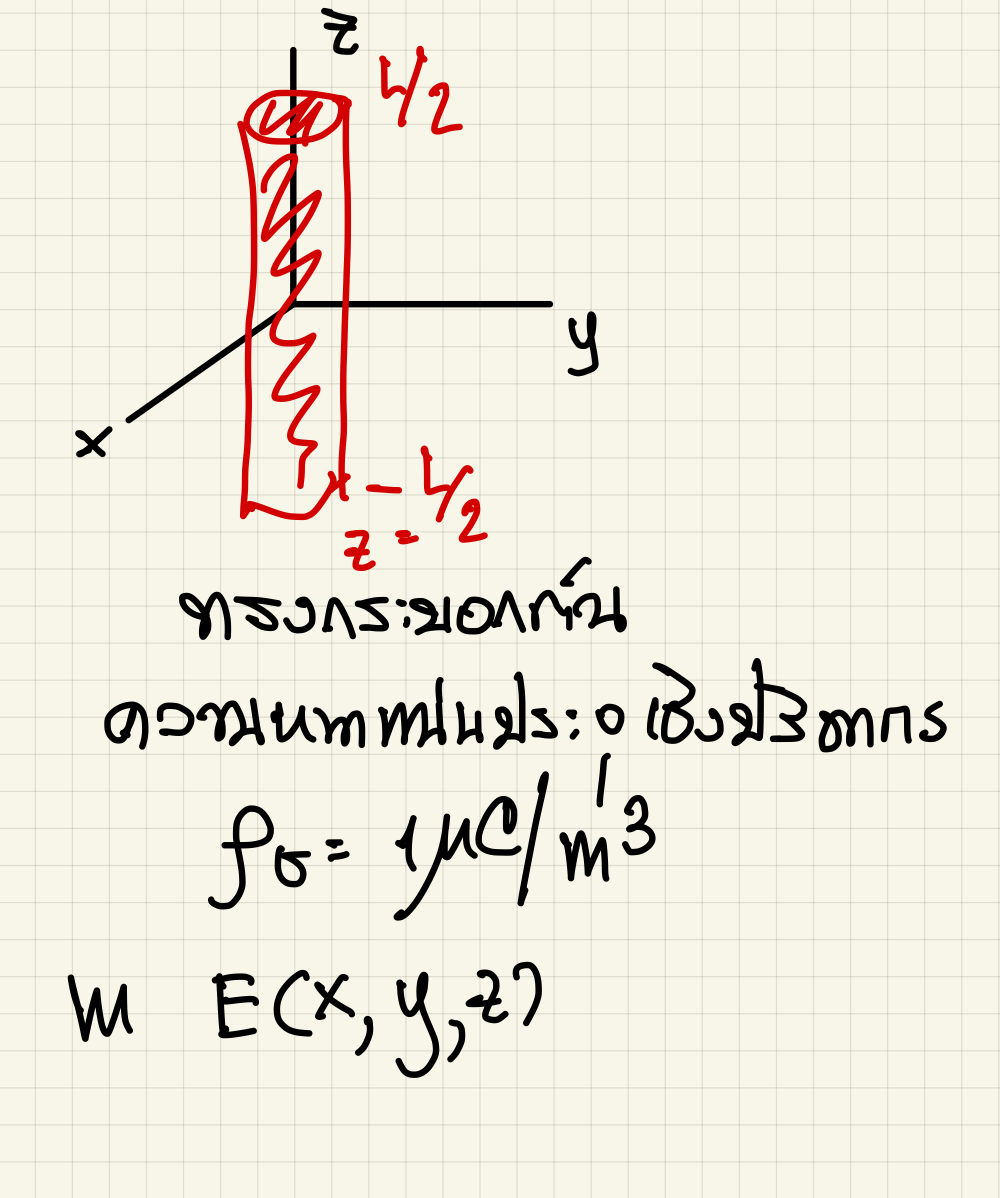 z
L/2
y
x
z = - L/2
ทรงกระบอกตัน
ความหนาแน่นประจุเชิงปริมาตร
ρσ = 1μC/m³
หา E(x, y, z)